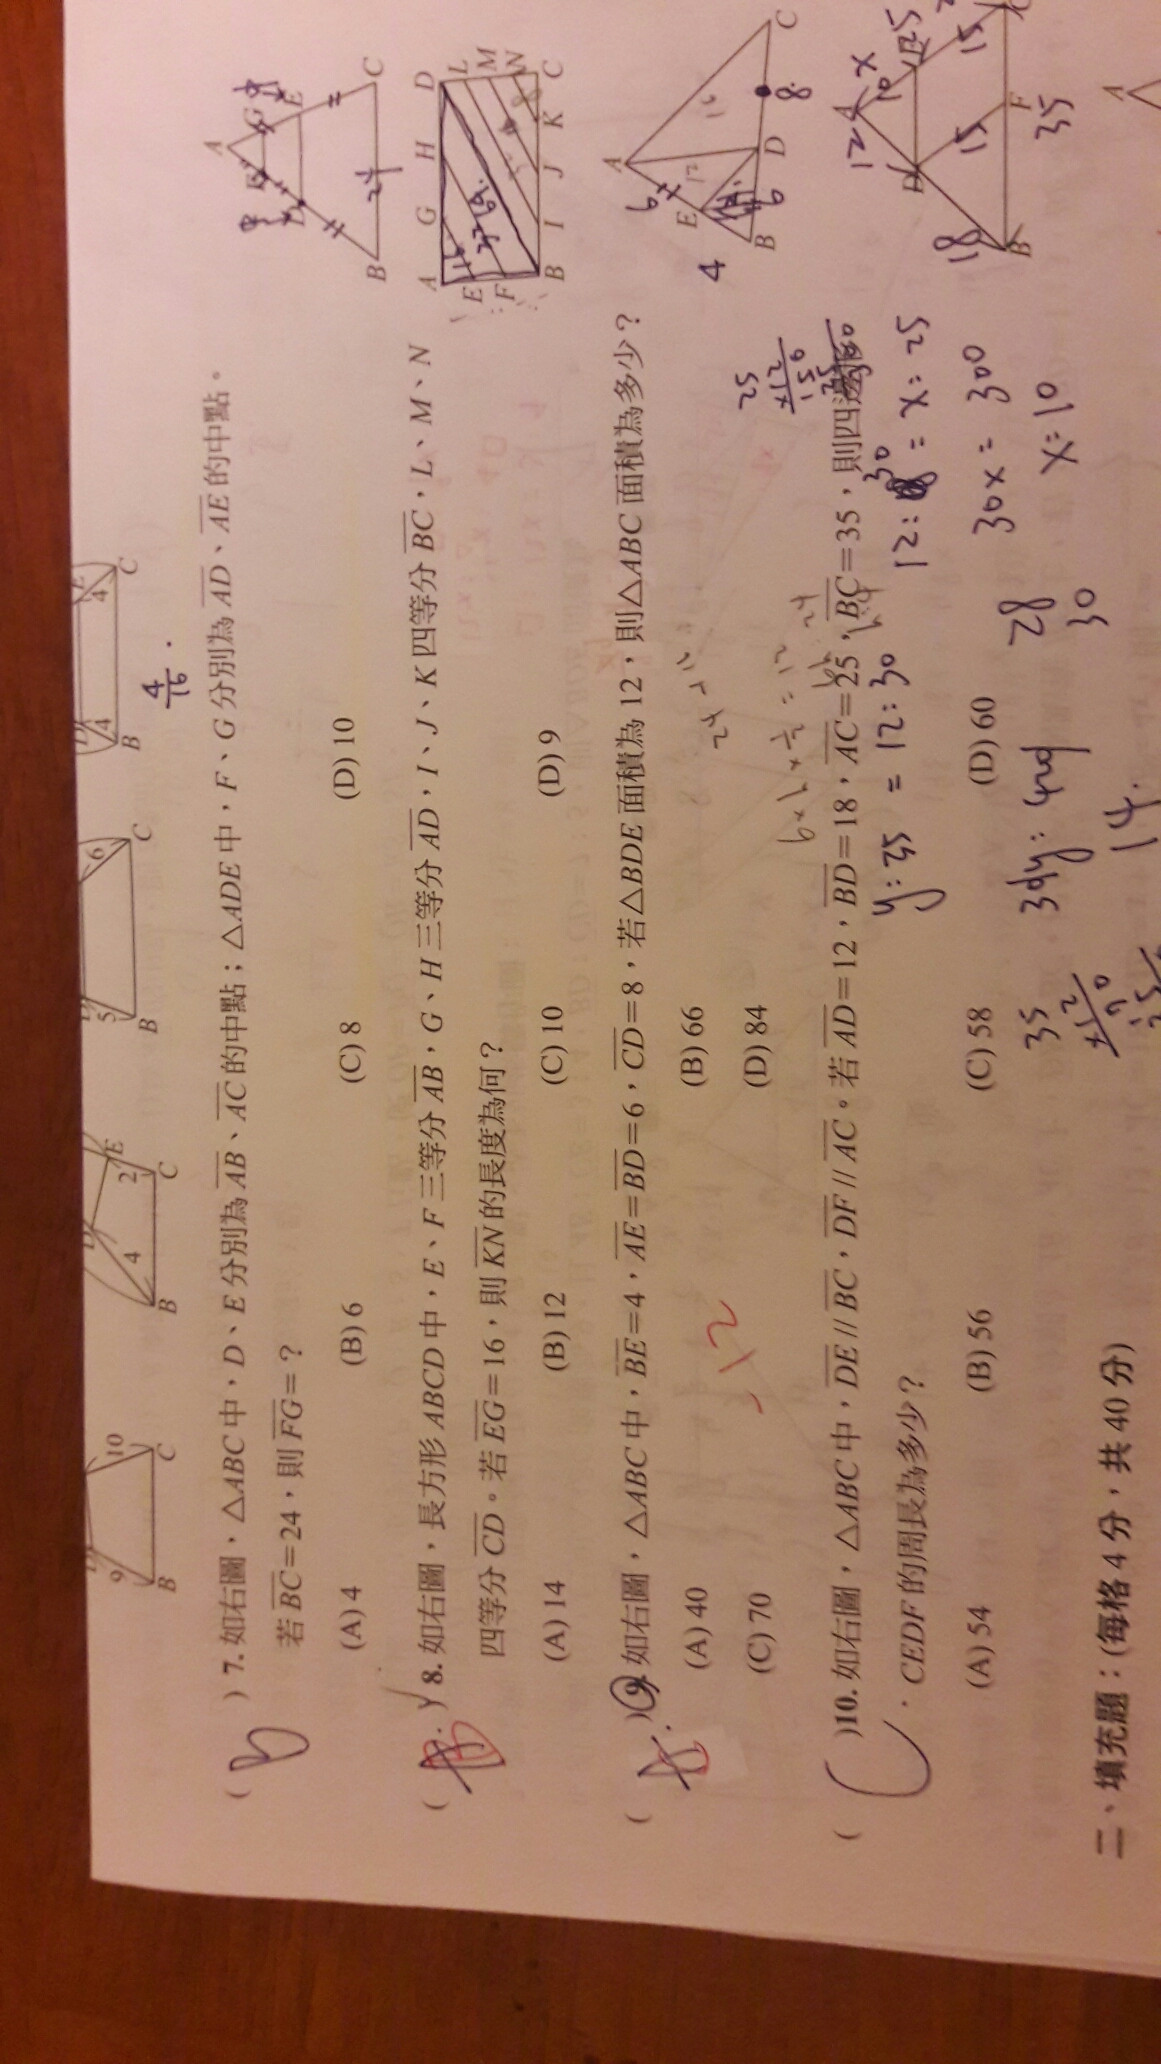 9 10 B C
4 2 D E B C
5 6 B C
4 4 B C
4/16
( B ) 7. 如右圖，△ABC 中，D、E 分別為 AB、AC 的中點；△ADE 中，F、G 分別為 AD、AE 的中點。
若 BC=24，則 FG=？
(A) 4 (B) 6 (C) 8 (D) 10
A G E D B C 24
( ) 8. 如右圖，長方形 ABCD 中，E、F 三等分 AB，G、H 三等分 AD，I、J、K 四等分 BC，L、M、N
四等分 CD。若 EG=16，則 KN 的長度為何？
(A) 14 (B) 12 (C) 10 (D) 9
A G H D
E F L M N
B I J K C
16
( ) 9. 如右圖，△ABC 中，BE=4，AE=BD=6，CD=8，若△BDE 面積為 12，則△ABC 面積為多少？
(A) 40 (B) 66
(C) 70 (D) 84
A E B D C
6 4 6 8 12
12
24 + 12
( C ) 10. 如右圖，△ABC 中，DE // BC，DF // AC。若 AD=12，BD=18，AC=25，BC=35，則四邊形
CEDF 的周長為多少？
(A) 54 (B) 56 (C) 58 (D) 60
A D B F
12 x 10 25 18 15 15 35
25
×12
150
12 : 30 = x : 25
30x = 300
x = 10
y : 35 = 12 : 30
28
30
14.
35
×12
二、填充題：(每格 4 分，共 40 分)
A